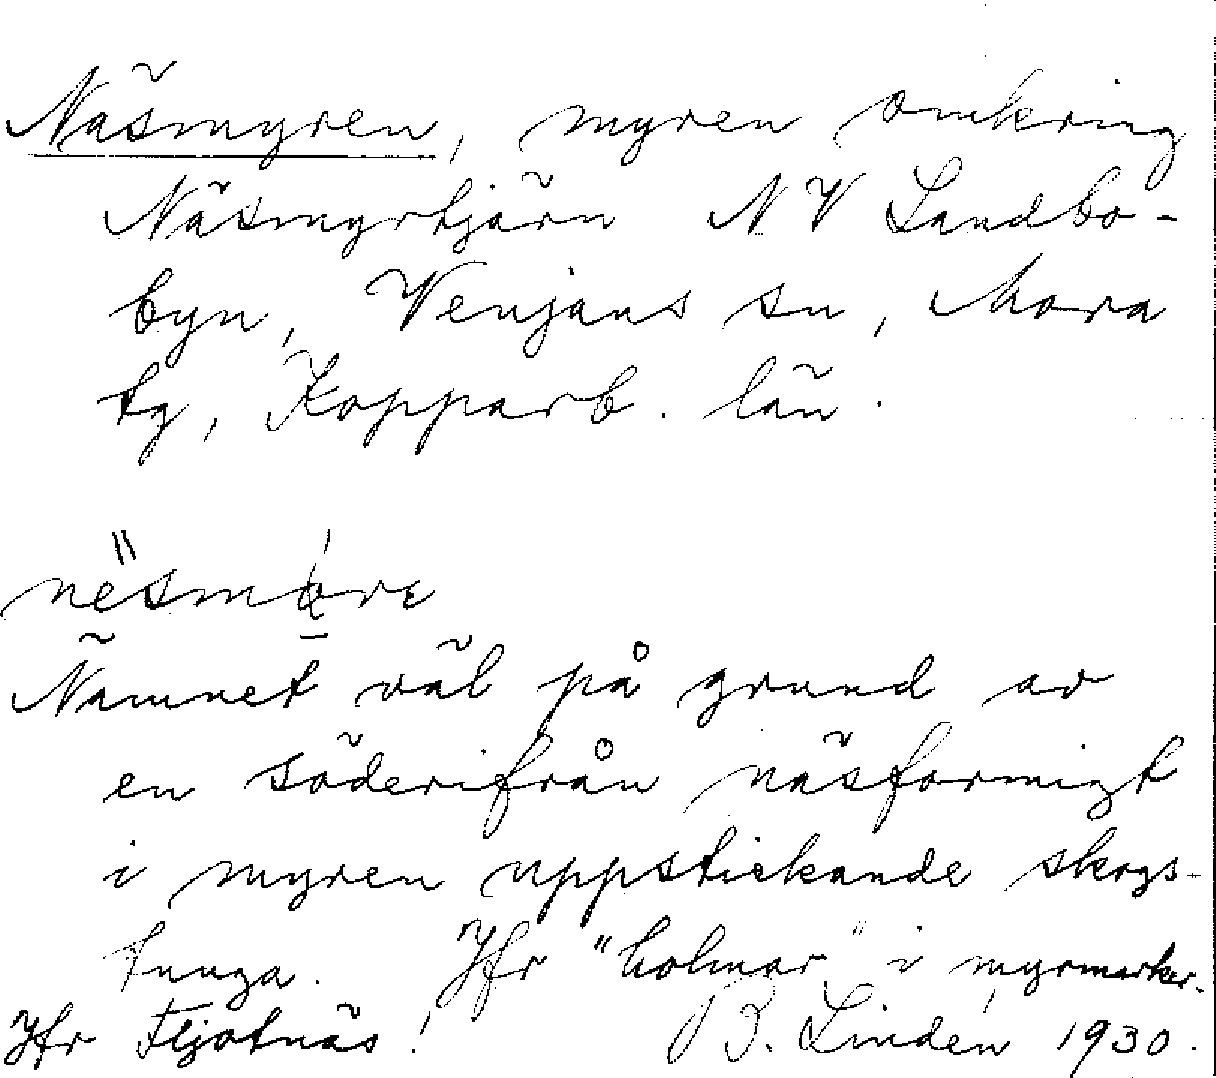 Näsmyren, myren omkring
Näsmyrtjärn NV Landbo-
byn, Venjans sn, Mora
tg, Kopparb. län.
Namnet väl på grund av
en söderifrån näsformigt
i myren uppstickande skogs-
tunga. Jfr "holmar" i myrmarker.
Jfr Fljotnäs! B. Lindén 1930.